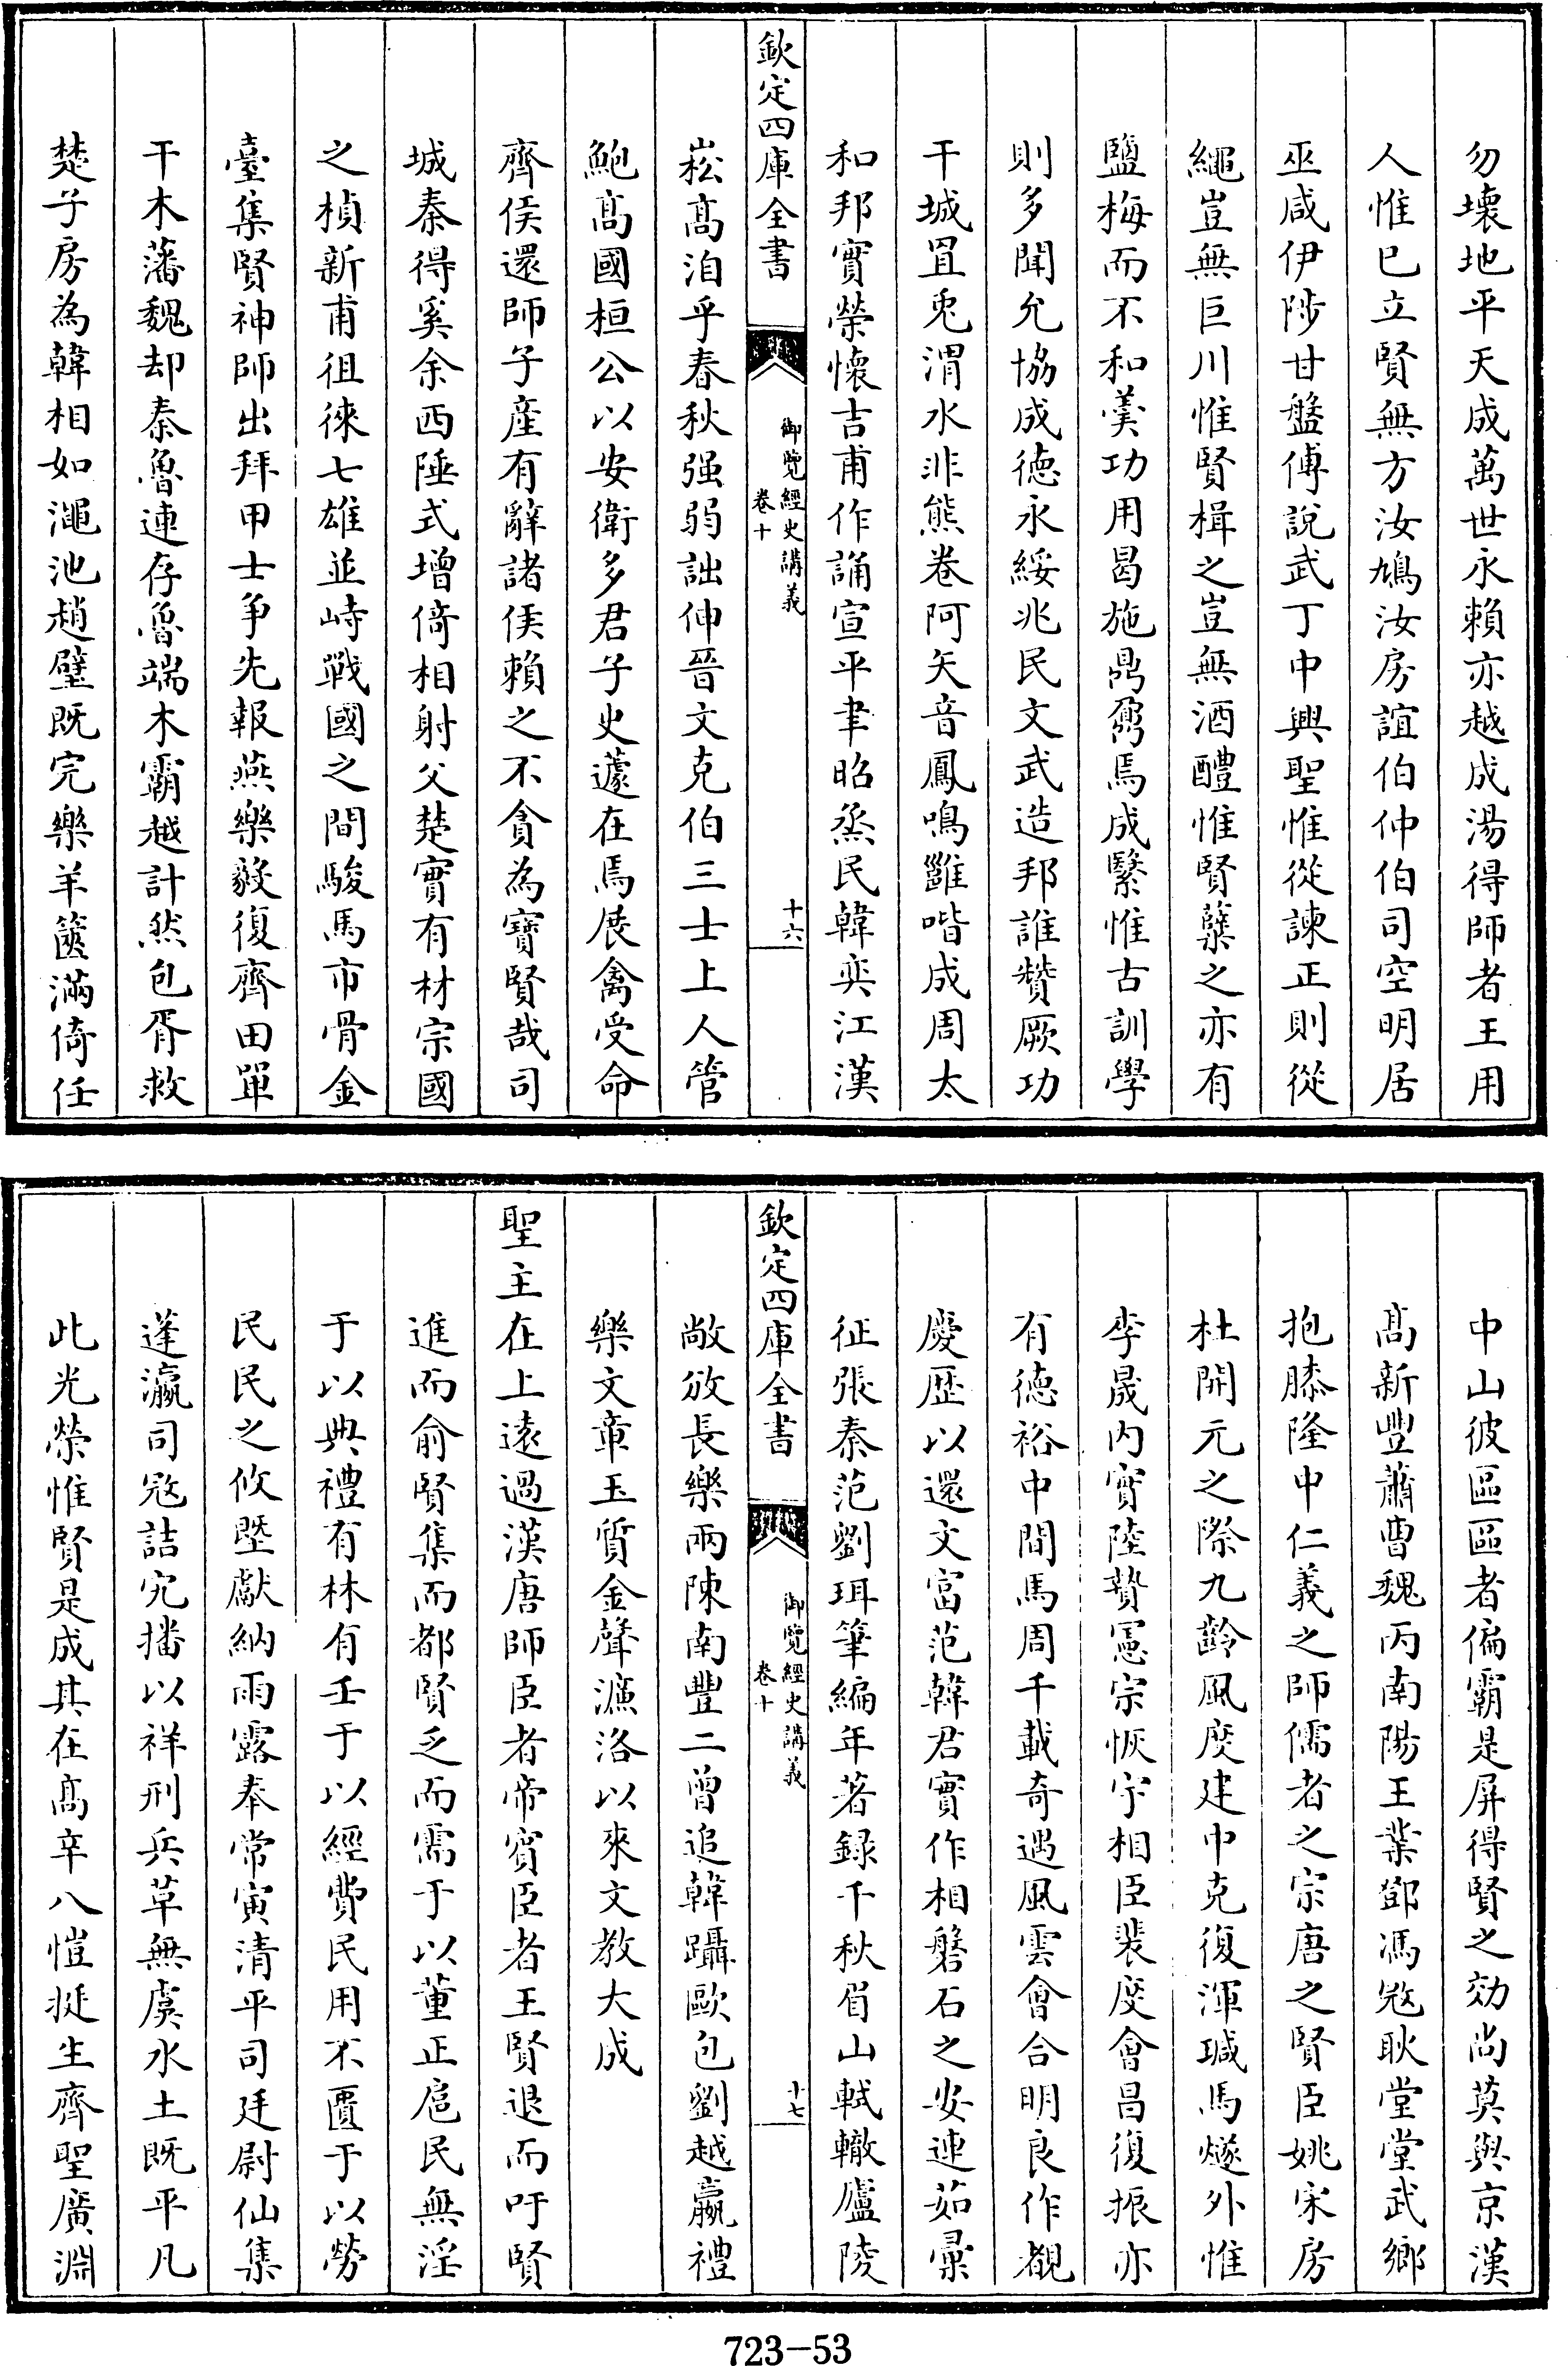 勿壞地平天成萬世永賴亦越成湯得師者王用
人惟已立賢無方汝鳩汝房誼伯仲伯司空明居
巫咸伊陟甘盤傅說武丁中興聖惟從諫正則從
繩豈無巨川惟賢楫之豈無酒醴惟賢蘖之亦有
鹽梅而不和羹功用曷施鼎鼐焉成繄惟古訓學
則多聞允協成德永綏兆民文武造邦誰贊厥功
干城罝兎渭水非熊卷阿矢音鳳鳴雝喈成周太
和邦實榮懷吉甫作誦宣平聿昭烝民韓奕江漢
欽定四庫全書
御覽經史講義
卷十
十六
崧髙洎乎春秋强弱詘伸晉文克伯三士上人管
鮑髙國桓公以安衛多君子史蘧在焉展禽受命
齊侯還師子產有辭諸侯賴之不貪為寶賢哉司
城秦得奚余西陲式增倚相射父楚實有材宗國
之楨新甫徂徠七雄並峙戰國之間駿馬市骨金
臺集賢神師出拜甲士爭先報燕樂毅復齊田單
干木藩魏却秦魯連存魯端木霸越計然包胥救
楚子房為韓相如澠池趙璧既完樂羊篋滿倚任
中山彼區區者偏霸是屏得賢之効尚莫與京漢
髙新豐蕭曹魏丙南陽王業鄧馮宼耿堂堂武鄉
抱膝隆中仁義之師儒者之宗唐之賢臣姚宋房
杜開元之際九齡風度建中克復渾瑊馬燧外惟
李晟内實陸贄憲宗恢宇相臣裴度會昌復振亦
有德裕中間馬周千載奇遇風雲會合明良作覩
慶歴以還文富范韓君實作相磐石之安連茹彚
征張秦范劉珥筆編年著録千秋眉山軾轍廬陵
欽定四庫全書
御覽經史講義
卷十
十七
敞攽長樂兩陳南豐二曾追韓躡歐包劉越嬴禮
樂文章玉質金聲濂洛以來文教大成
聖主在上遠過漢唐師臣者帝賓臣者王賢退而吁賢
進而俞賢集而都賢乏而需于以董正扈民無淫
于以典禮有林有壬于以經費民用不匱于以勞
民民之攸塈獻納雨露奉常寅清平司廷尉仙集
蓬瀛司宼詰宄播以祥刑兵革無虞水土既平凡
此光榮惟賢是成其在髙辛八愷挺生齊聖廣淵
723-53